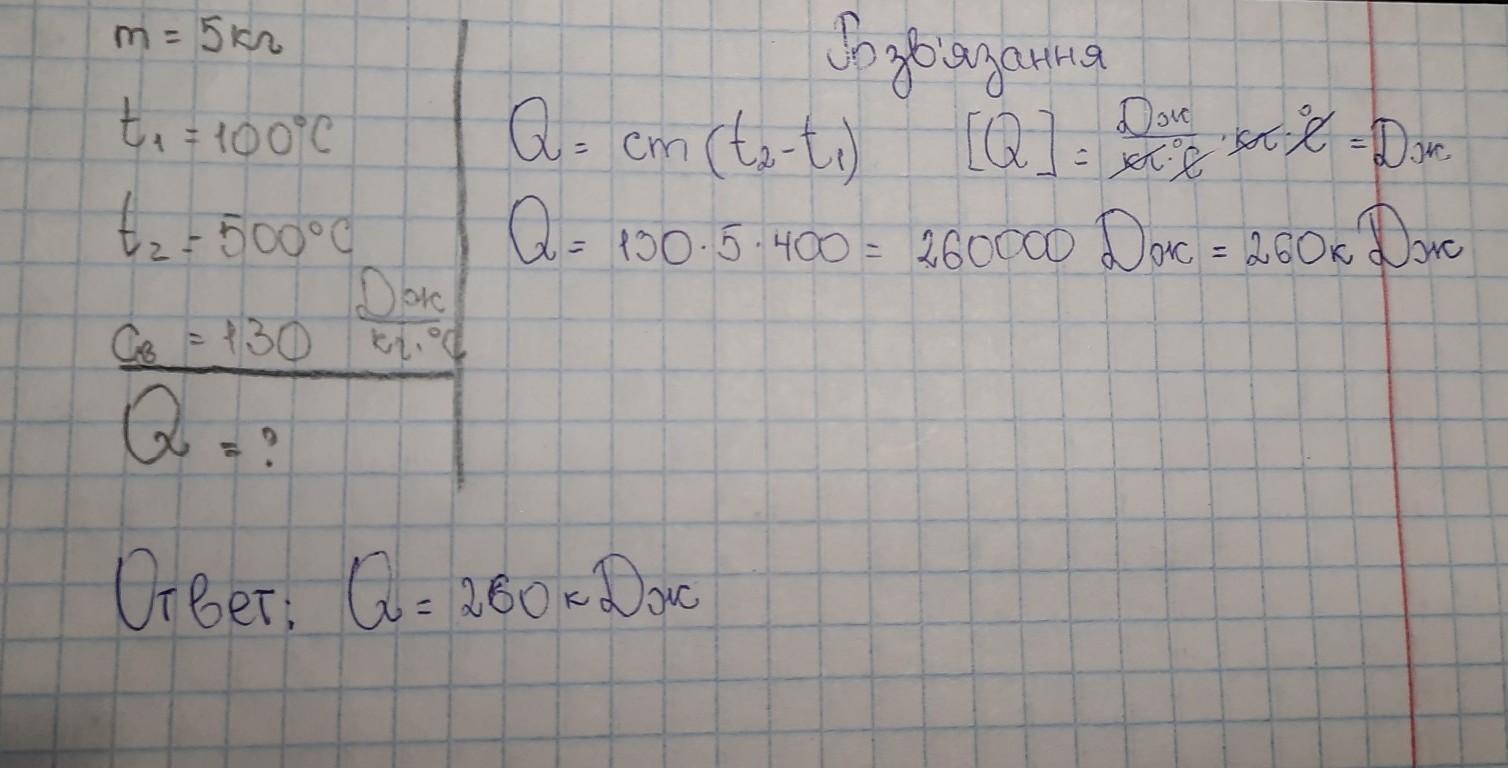 m = 5кг
t₁ = 100°C
t₂ = 500°C
cв = 130 Дж/кг·°C
Q = ?
Розв'язання
Q = cm(t₂-t₁) [Q] = Дж/кг·°C · кг·°C = Дж
Q = 130·5·400 = 260000 Дж = 260кДж
Ответ: Q = 260кДж